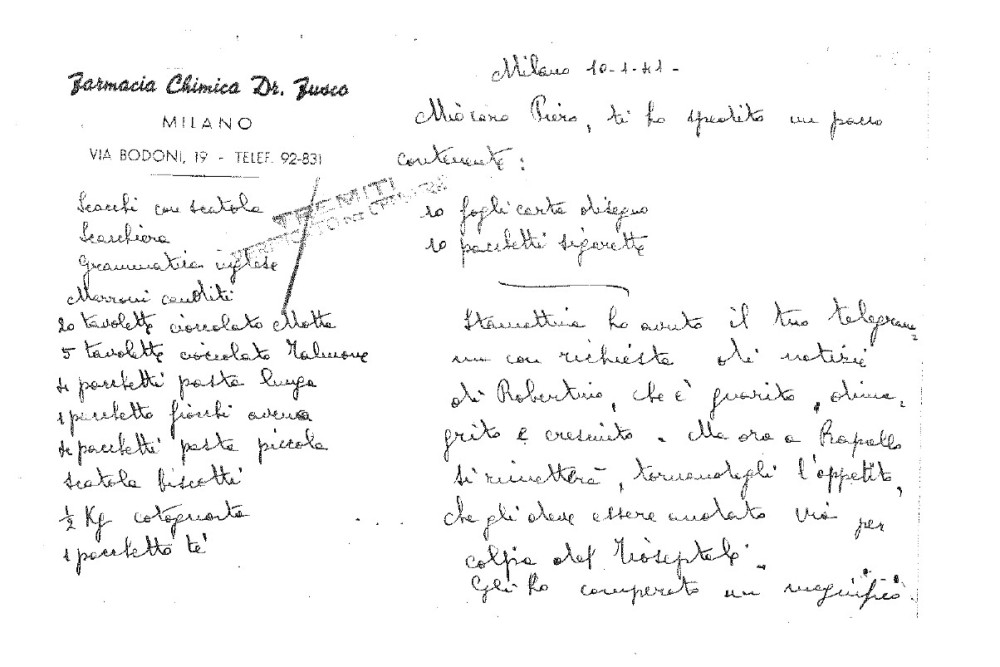 Farmacia Chimica Dr. Fusco
MILANO
VIA BODONI, 19 - TELEF. 92-831
Milano 10-1-41-
Mio caro Piero, ti ho spedito un pacco
contenente:
Scacchi con scatola
Scacchiera
Grammatica inglese
Marroni canditi
20 tavolette cioccolato Motta
5 tavolette cioccolato Talmone
4 pacchetti pasta lunga
1 pacchetto fiocchi avena
4 pacchetti pasta piccola
scatola biscotti
½ Kg cotognata
1 pacchetto tè
TREMITI
VERIFICATO PER CENSURA
10 fogli carta disegno
10 pacchetti sigarette
Stamattina ho avuto il tuo telegram=
ma con richiesta di notizie
di Robertino, che è guarito, dima=
grito e cresciuto. Ma ora a Rapallo
si rimetterà, tornandogli l'appetito,
che gli deve essere andato via per
colpa del
Gli ho comperato un magnifico